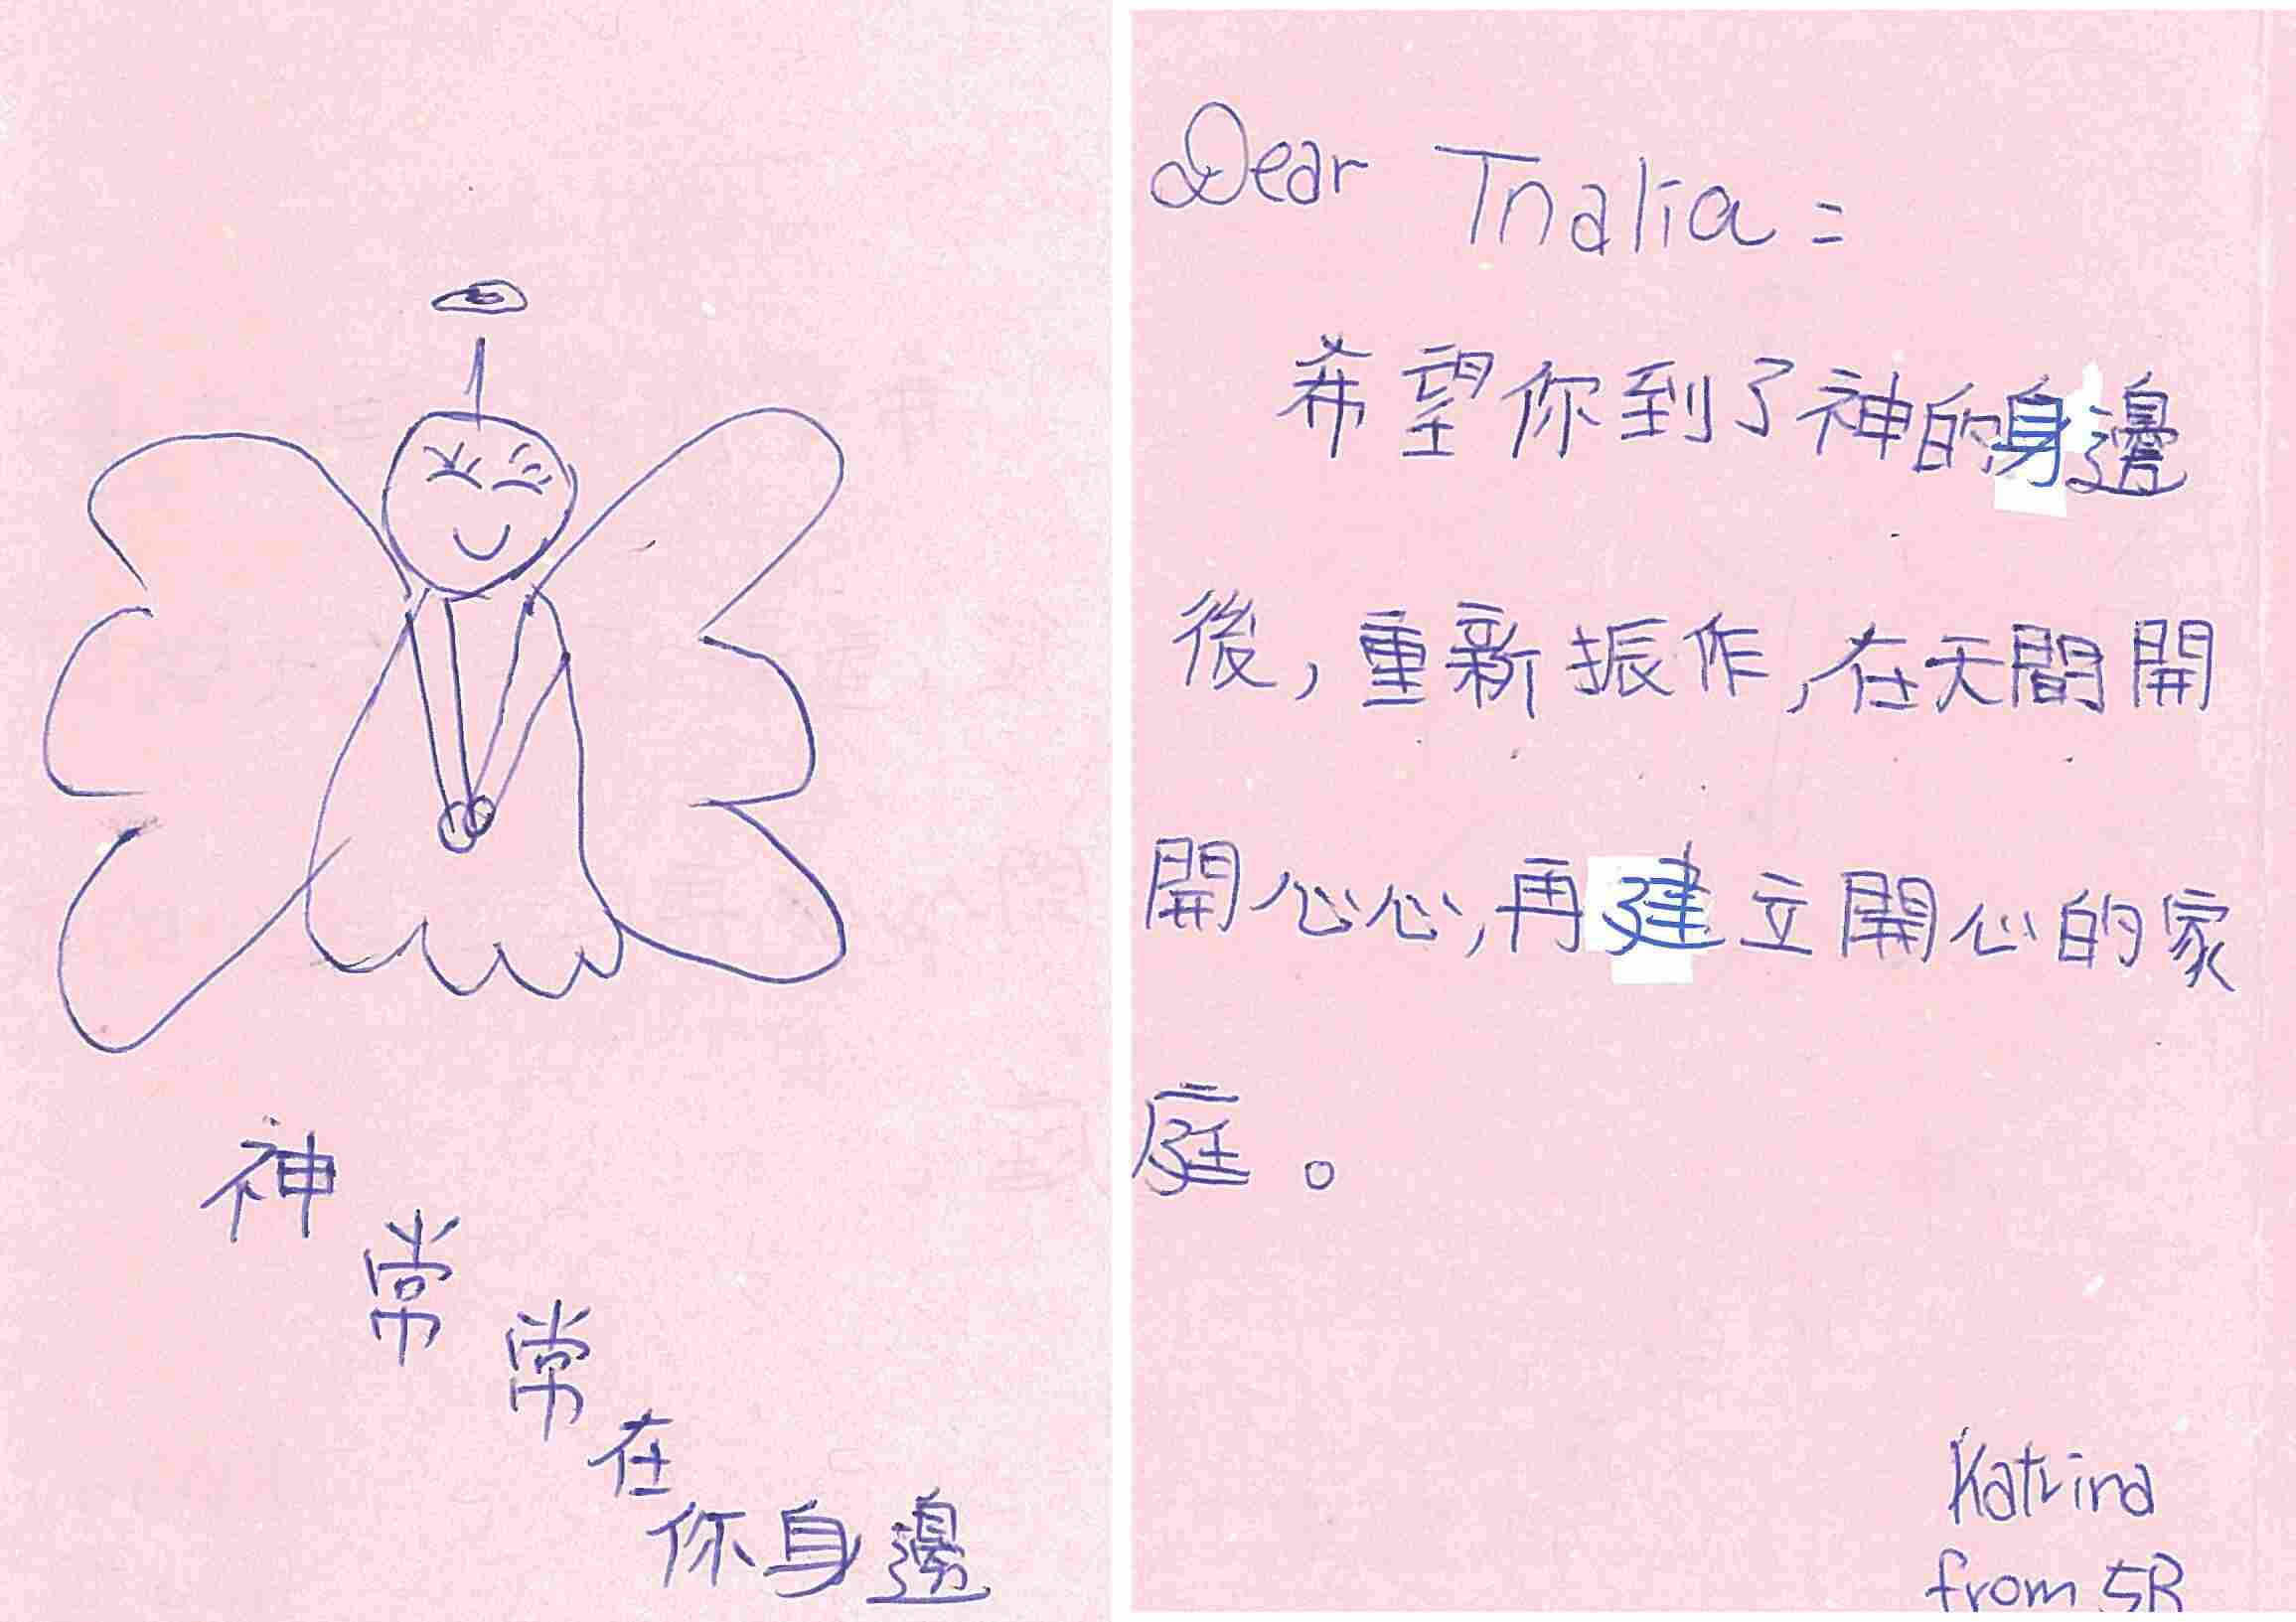 神
常
常
在
你身邊
Dear Tnalia:
希望你到了神的身邊
後,重新振作,在天間開
開心心,再建立開心的家
庭。
Katrina
from 5R